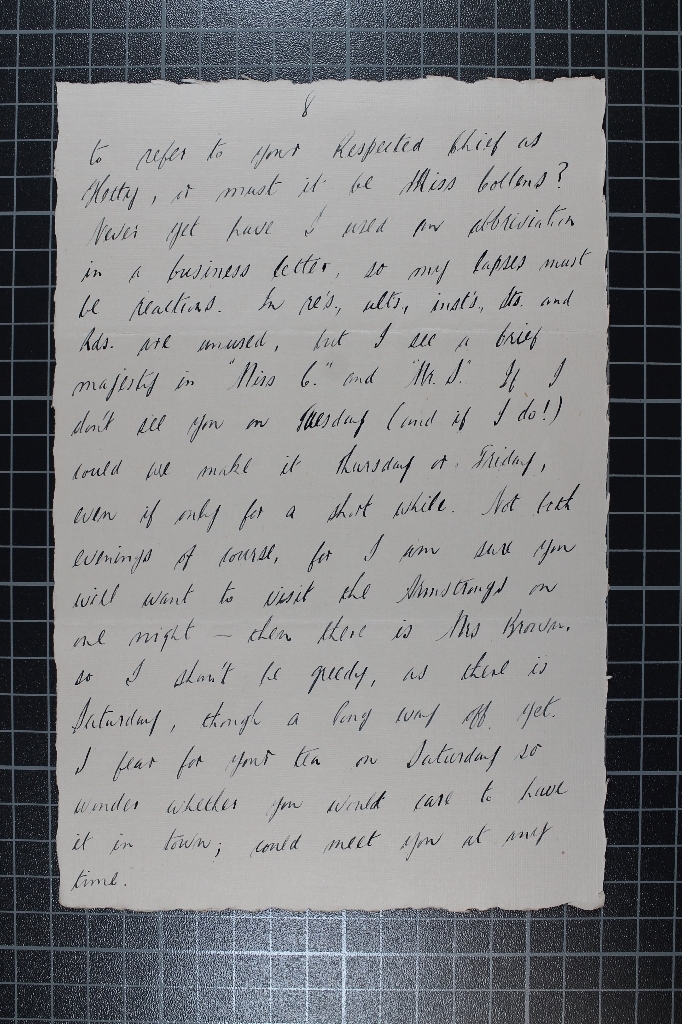 8
to refer to your Respected Chief as
Hetty, or must it be Miss Collens?
Never yet have I used an abbreviation
in a business letter, so my lapses must
be reactions. In re's, ults, inst's, sts. and
Rds. are unused, but I see a brief
majesty in "Miss C." and "Mr. S." If I
don't see you on Tuesday (and if I do!)
could we make it Thursday or Friday,
even if only for a short while. Not both
evenings of course, for I am sure you
will want to visit the Armstrongs on
one night – then there is Mrs Brown.
so I shan't be greedy, as there is
Saturday, though a long way off yet.
I fear for your tea on Saturday so
wonder whether you would care to have
it in town; could meet you at any
time.